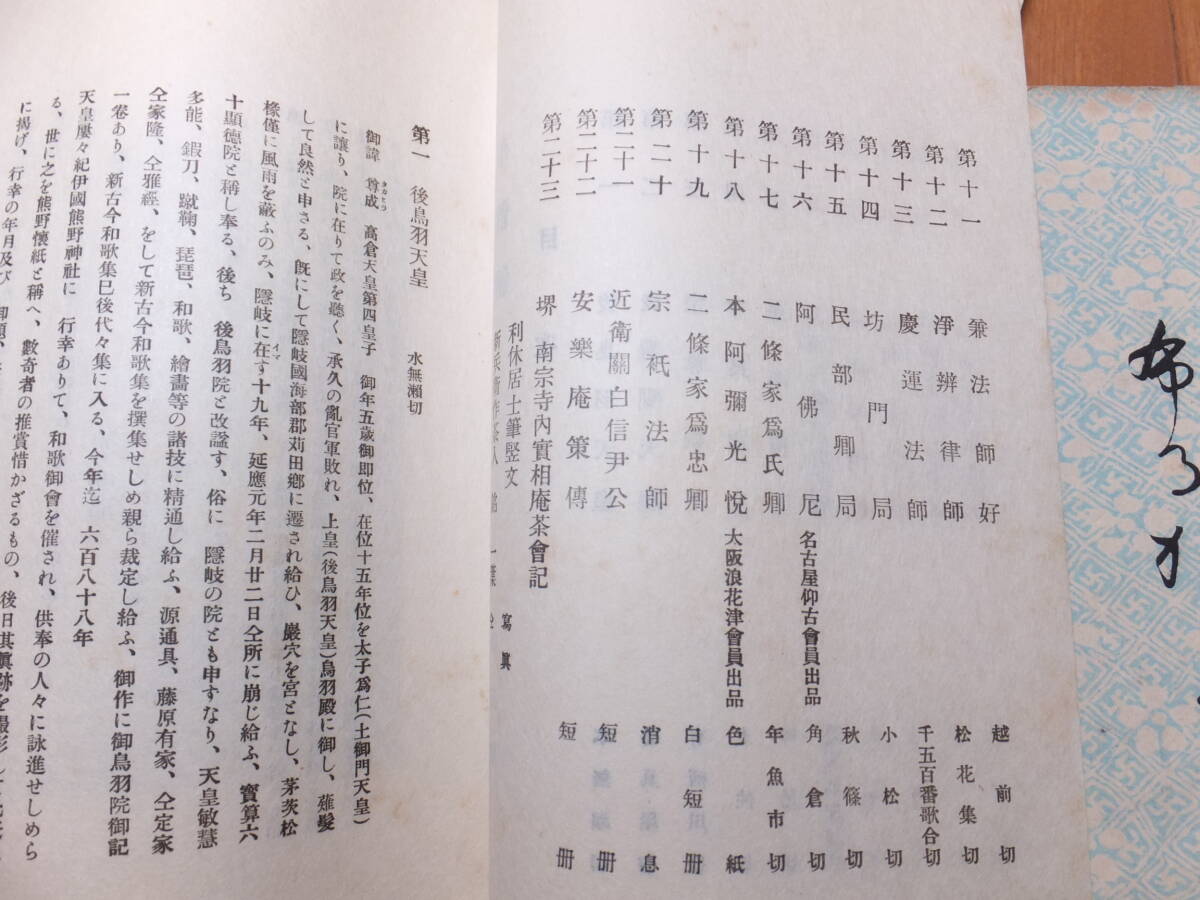 第十一 兼好法師 越前切
第十二 淨辨律師 松花集切
第十三 慶運法師 千五百番歌合切
第十四 坊門局 小松切
第十五 民部卿局 秋篠切
第十六 阿佛尼 名古屋仰古會員出品 角倉切
第十七 二條家爲氏卿 年魚市切
第十八 本阿彌光悦 大阪浪花津會員出品 色紙
第十九 二條家爲忠卿 白短册
第二十 宗祇法師 消息
第二十一 近衞關白信尹公 短册
第二十二 安樂庵策傳 短册
第二十三 堺南宗寺内實相庵茶會記
利休居士筆竪文 寫眞
第一 後鳥羽天皇 水無瀨切
御諱 尊成 タカヒラ 高倉天皇第四皇子 御年五歳御即位、在位十五年位を太子爲仁(土御門天皇)
に讓り、院に在りて政を聽く、承久の亂官軍敗れ、上皇(後鳥羽天皇)鳥羽殿に御し、薙髮
して良然と申さる、既にして隱岐國海部郡苅田鄕に遷され給ひ、巖穴を宮となし、茅茨松
椽僅に風雨を蔽ふのみ、隱岐に在す イマ 十九年、延應元年二月廿二日仝所に崩じ給ふ、寳算六
十顯德院と稱し奉る、後ち 後鳥羽院と改謚す、俗に 隱岐の院とも申すなり、天皇敏慧
多能、鍜刀、蹴鞠、琵琶、和歌、繪畫等の諸技に精通し給ふ、源通具、藤原有家、仝定家
仝家隆、仝雅經、をして新古今和歌集を撰集せしめ親ら裁定し給ふ、御作に御鳥羽院御記
一卷あり、新古今和歌集巳後代々集に入る、今年迄 六百八十八年
天皇屢々紀伊國熊野神社に 行幸ありて、和歌御會を催され、供奉の人々に詠進せしめら
る、世に之を熊野懷紙と稱へ、數奇者の推賞惜かざるもの、後日其眞跡を撮影し
に揭げ、行幸の年月及び 御題、